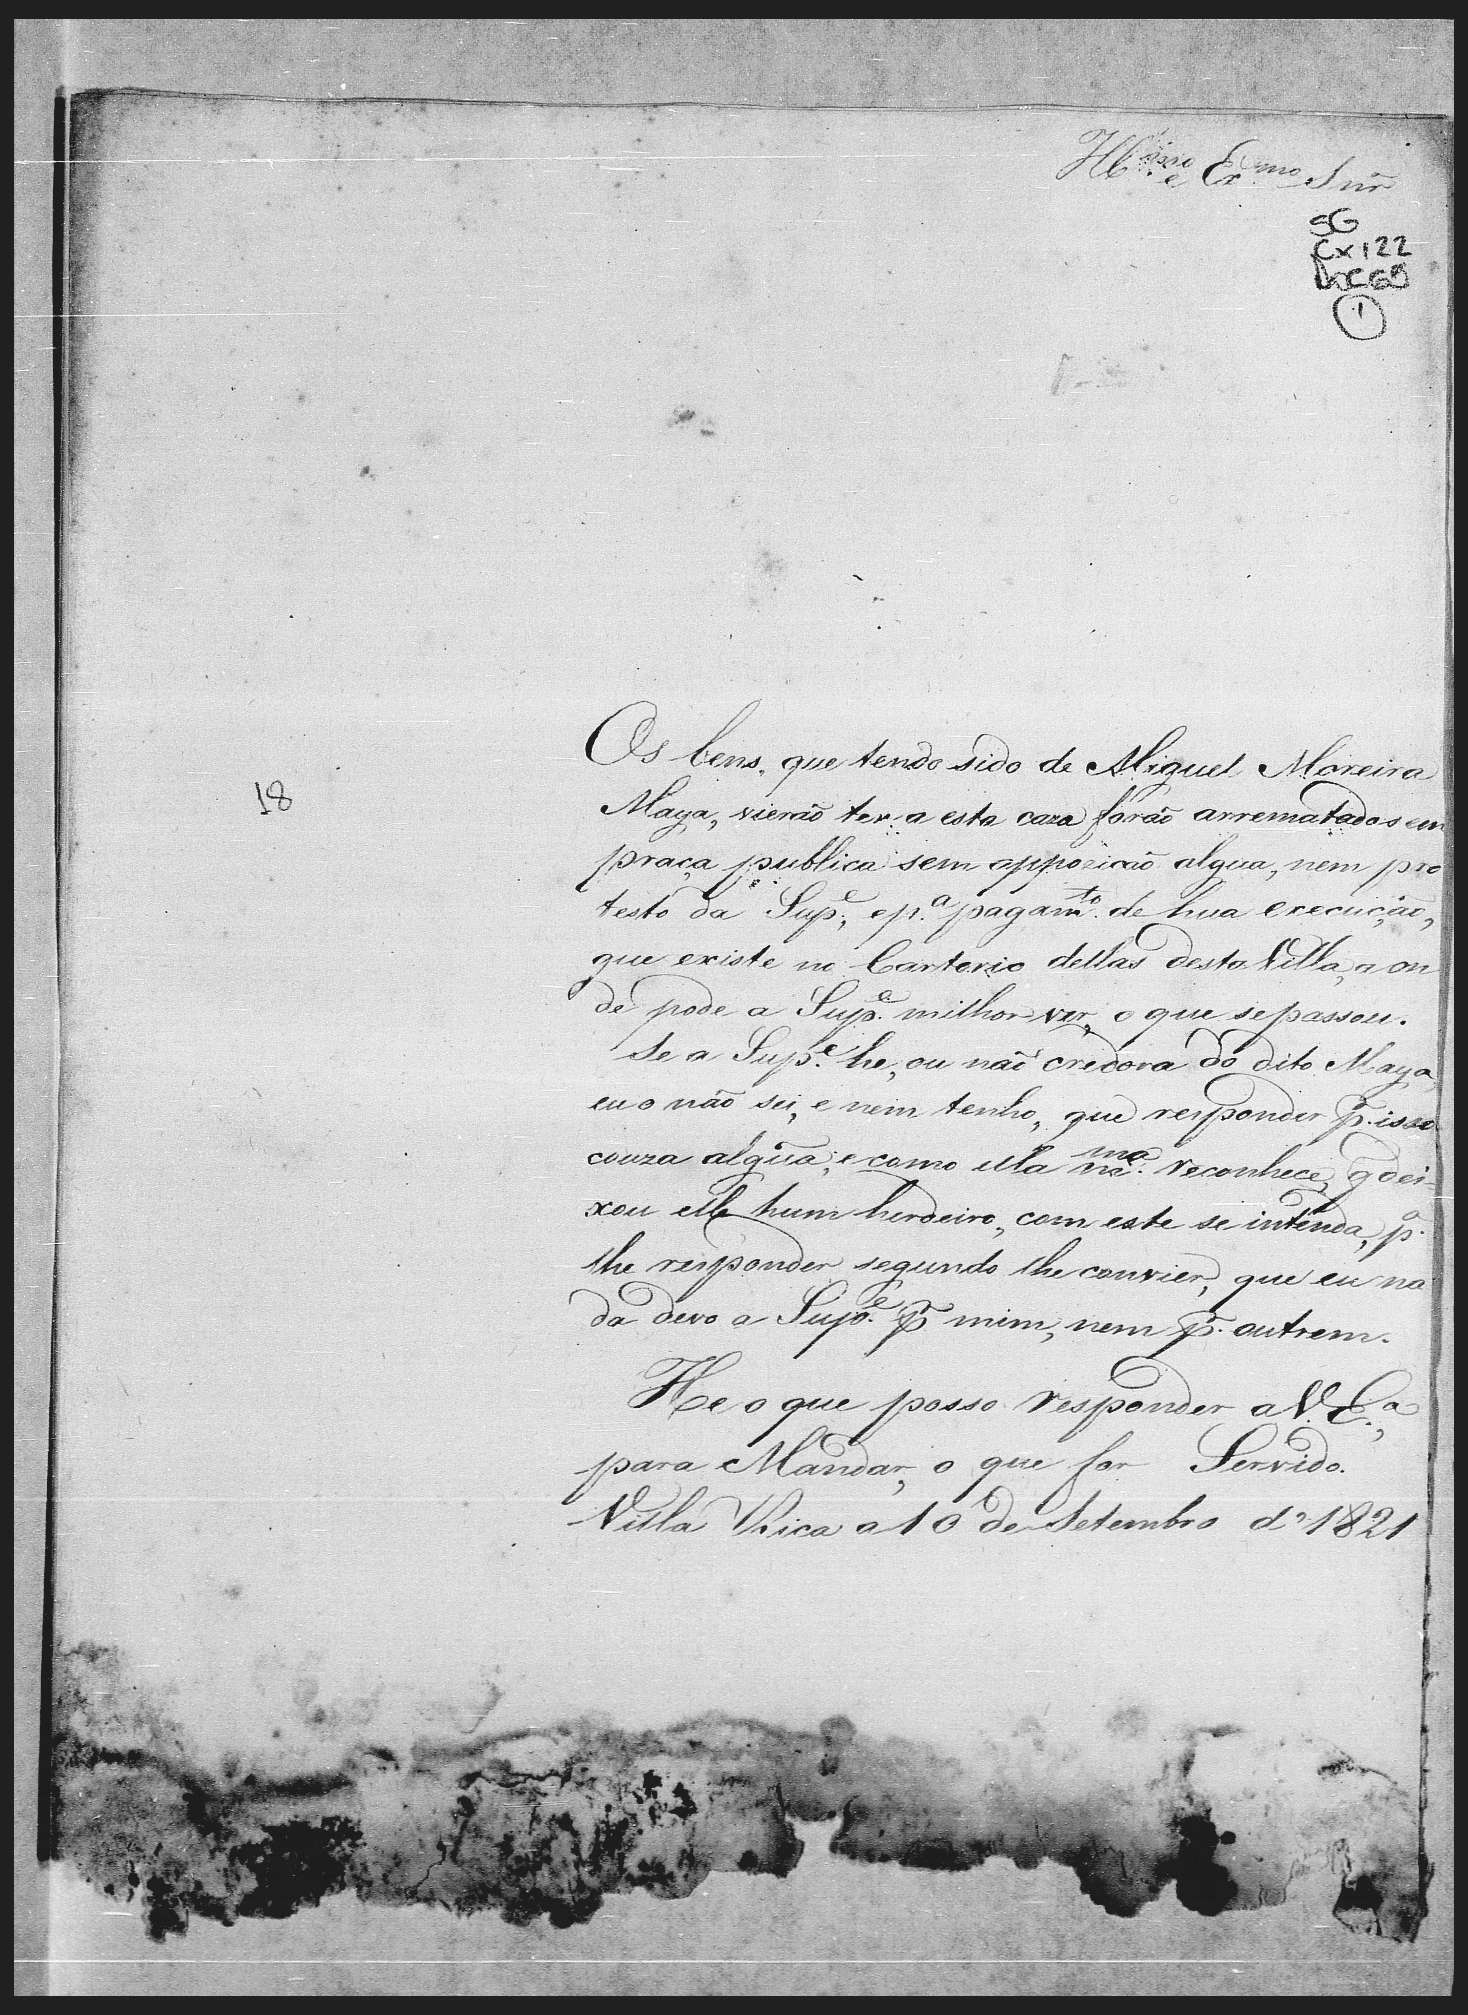 Ill.mo e Ex.mo Snr
SG
Cx 122
1
18
Os bens, que tendo sido de Miguel Moreira
Maya, vierão ter a esta caza forão arrematados em
praça publica sem oppozicão algua, nem pro
testo da Sup.e, e p.a pagam.to de hua execução,
que existe no Cartorio dellas desta Villa, a on
de pode a Sup.e milhor ver, o que se passou.
Se a Sup.e he, ou não credora do dito Maya,
eu o não sei, e nem tenho, que responder p.r isso
couza algũa, e como ella ma reconhece, q̃ dei-
xou elle hum herdeiro, com este se intenda, p.a
lhe responder segundo lhe convier, que eu na
da devo a Sup.e p.r mim, nem p.r outrem.
He o que posso responder a V. E.a,
para Mandar, o que for Servido.
Villa Rica a 10 de Setembro de 1821